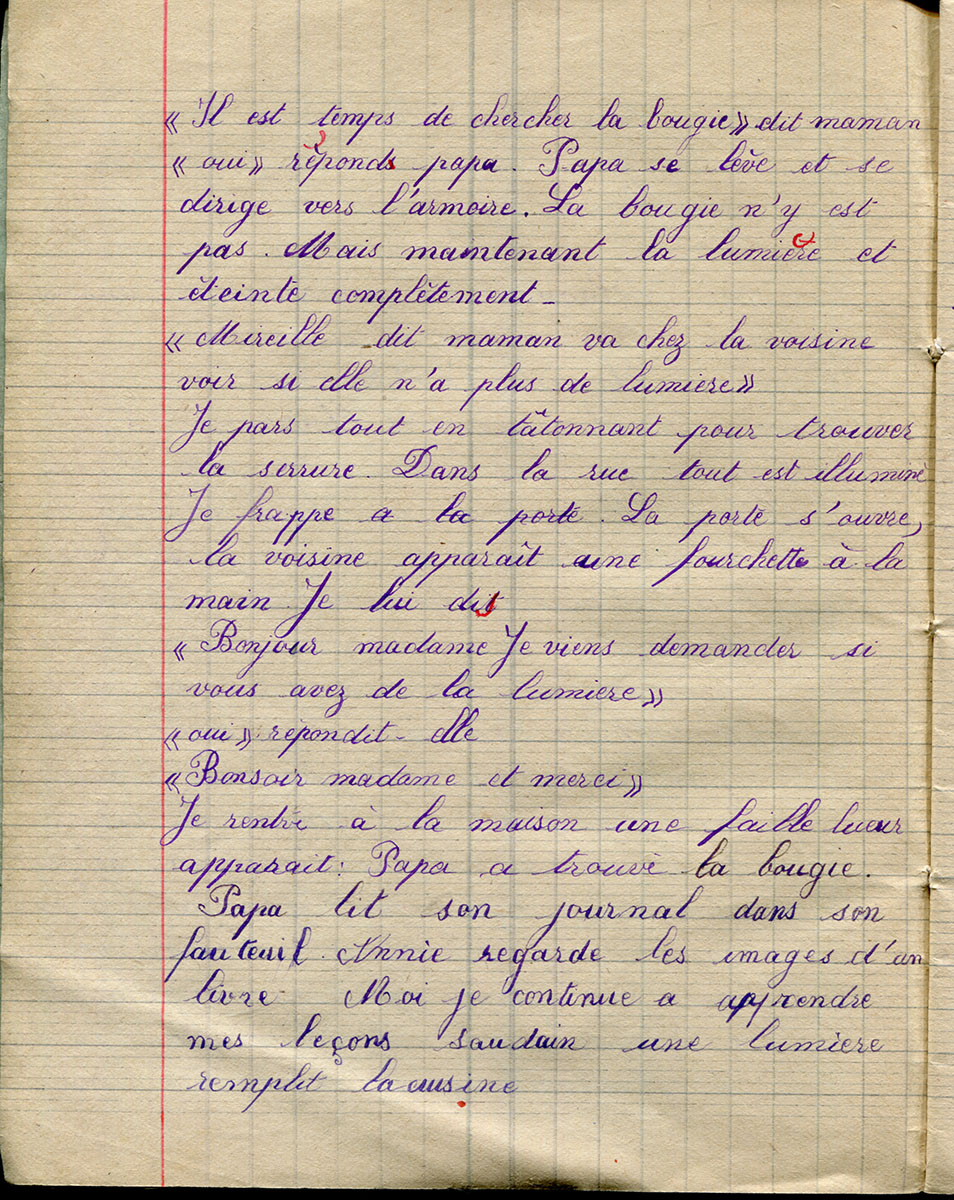 « Il est temps de chercher la bougie » dit maman
« oui » réponds papa. Papa se lève et se
dirige vers l'armoire. La bougie n'y est
pas. Mais maintenant la lumière et
éteinte complètement_
« Mireille dit maman va chez la voisine
voir si elle n'a plus de lumiere »
Je pars tout en tâtonnant pour trouver
la serrure. Dans la rue tout est illuminé
Je frappe a la porte. La porte s'ouvre,
la voisine apparaît une fourchette à la
main Je lui dis
« Bonjour madame Je viens demander si
vous avez de la lumiere »
« oui » répondit-elle
« Bonsoir madame et merci »
Je rentre à la maison une faille lueur
apparait : Papa a trouvé la bougie.
Papa lit son journal dans son
fauteuil. Annie regarde les images d'un
livre Moi je continue a apprendre
mes leçons saudain une lumiere
remplit la cusine